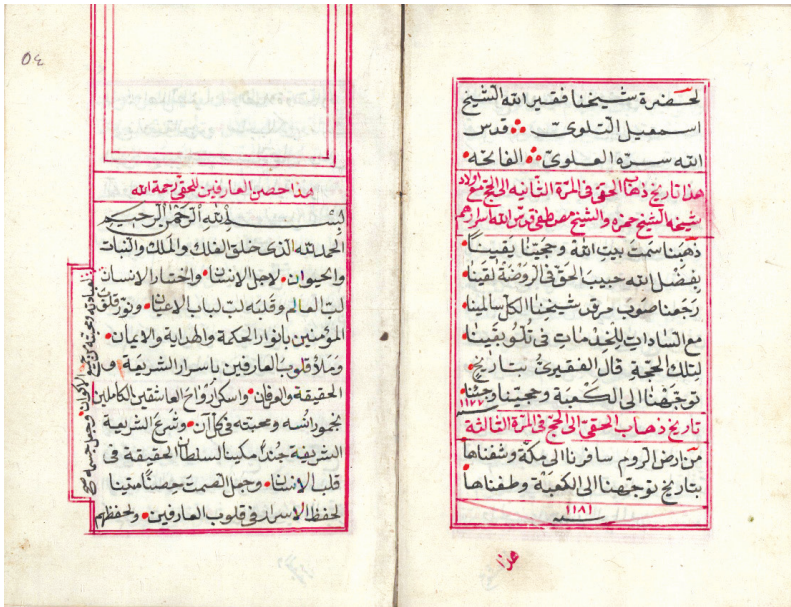 لحضرة شيخنا فقير الله الشيخ
اسمعيل التلوى قدس
الله سره العلوى الفاتحه
هذا تاريخ ذهاب الحقى فى المرة الثانيه الى الحج مع اولاد
شيخه الشيخ حمزه والشيخ مصطفى قدس الله اسرارهم
ذهبنا سمت بيت الله وحجيتنا يقينا
بفضل الله حبيب الحق فى الروضة لقينا
رجعنا صوب مرقد شيخنا الكل سالمينا
مع السادات للخدمات فى تلو بقينا
لتلك الحجة قال الفقيرى بتاريخ
توجهنا الى الكعبة وحجيتنا وجئنا
١١٧٧
تاريخ ذهاب الحقى الى الحج فى المرة الثالثة
من ارض الروم سافرنا الى مكة وشفناها
بتاريخ توجهنا الى الكعبة وطفناها
سنه ١١٨١
هذا
٥٤
هذا حصن العارفين للحقى رحمة الله
بسم الله الرحمن الرحيم
الحمد لله الذى خلق الفلك والملك والنبات
والحيوان لاجل الانسان واختار الانسان
لب العالم وقلبه لب لباب الاعيان ونور قلوب
المؤمنين بانوار الحكمة والهداية والايمان
وملأ قلوب العارفين باسرار الشريعة و
الحقيقة والعرفان واسكر ارواح العاشقين الكاملين
بخمور انسه ومحبته فى كل آن وشرع الشريعة
الشريفة جندا مكينا لسلطان الحقيقة فى
قلب الانسان وجعل الصمت حصنا متينا
لحفظ الاسرار فى قلوب العارفين ولحفظهم
لعبادته ومحبته من جميع الاكوان وجعل جسمه صح